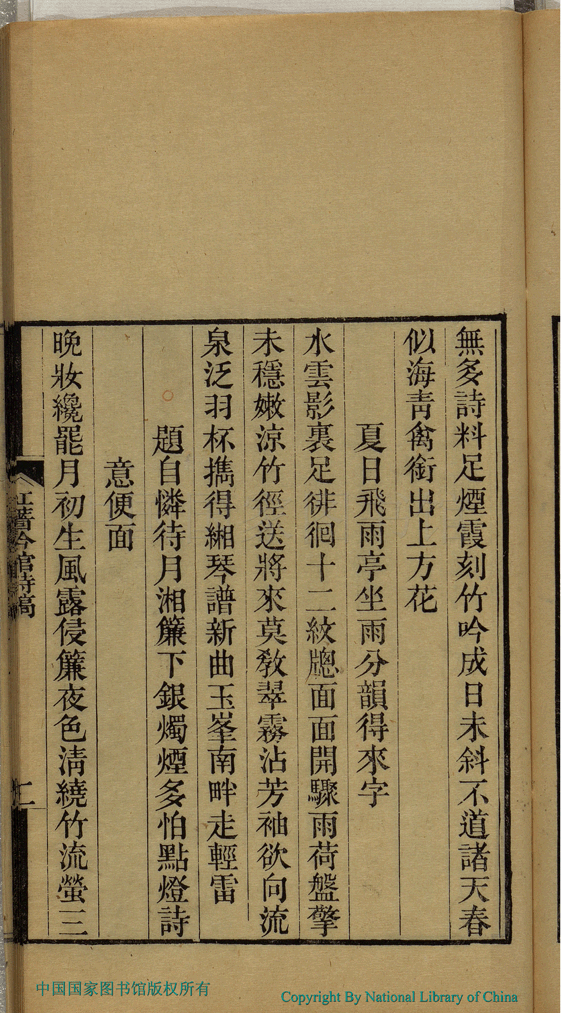 無多詩料足煙霞刻竹吟成日未斜不道諸天春
似海靑禽銜出上方花
夏日飛雨亭坐雨分韻得來字
水雲影裏足徘徊十二紋牕面面開驟雨荷盤擎
未穩嫩涼竹徑送將來莫敎翠霧沾芳袖欲向流
泉泛羽杯擕得緗琴譜新曲玉峯南畔走輕雷
題自憐待月湘簾下銀燭煙多怕點燈詩
意便面
晚妝纔罷月初生風露侵簾夜色淸繞竹流螢三
吟館詩稿
中国国家图书馆版权所有
Copyright By National Library of China